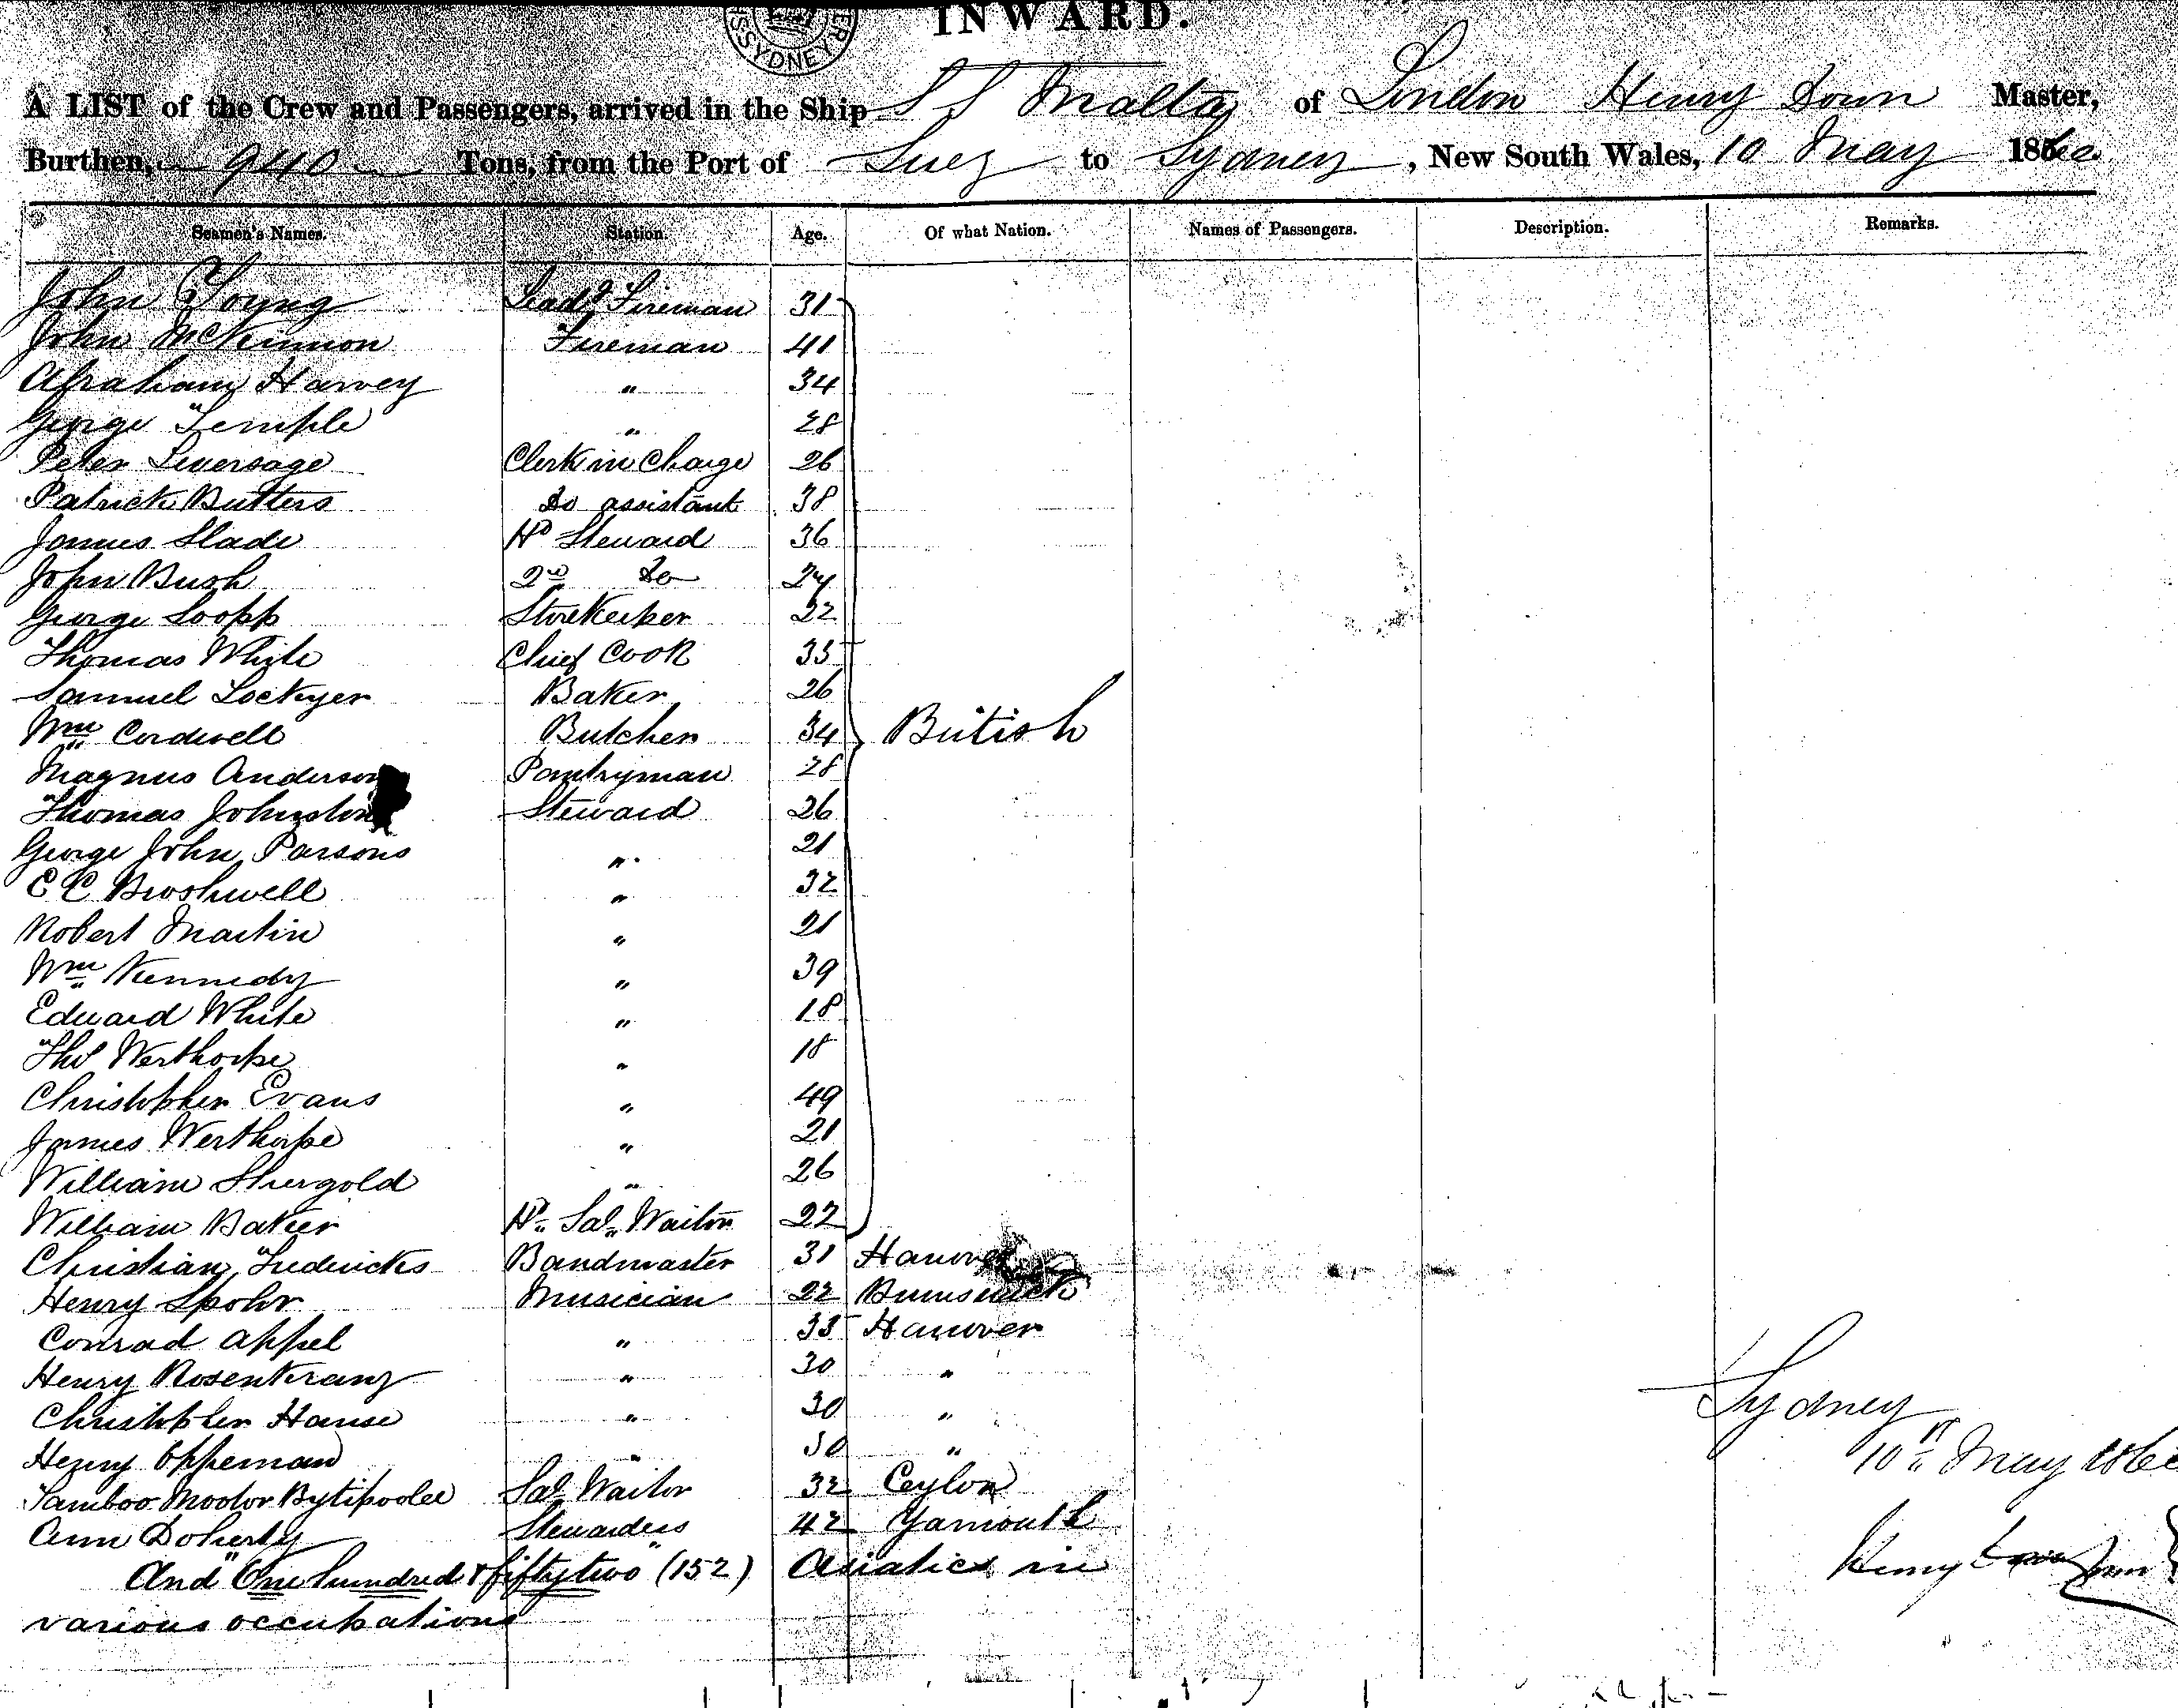 SYDNEY
INWARD.
A LIST of the Crew and Passengers, arrived in the Ship S S Malta of London Henry Down Master,
Burthen, 940 Tons, from the Port of Suez to Sydney, New South Wales, 10 May 1860
Seamen's Names. Station. Age. Of what Nation. Names of Passengers. Description. Remarks.
John Young Leadg Fireman 31
John McKinnon Fireman 41
Abraham Harvey " 34
George Temple " 28
Peter Liversage Clerk in Charge 26
Patrick Butters Do assistant 38
James Slade Hd Steward 36
John Bush 2nd Do 24
George Soopp Storekeeper 22
Thomas White Chief Cook 35
Samuel Lockyer Baker 26
Wm Cordwell Butcher 34 British
Magnus Anderson Pantryman 28
Thomas Johnston Steward 26
George John Parsons " 21
E C Broshwell " 32
Robert Martin " 21
Wm Kennedy " 39
Edward White " 18
Thos Westhorpe " 18
Christopher Evans " 49
James Westhorpe " 21
William Shergold " 26
William Baker Hd Sal Waiter 22
Christian Fredericks Bandmaster 31 Hanover
Henry Spohr Musician 22 Brunswick
Conrad Appel " 35 Hanover
Henry Rosenkranz " 30 "
Christopher Hause " 30 "
Henry Oppeman " 30 "
Tamboo Mootor Bytipoolee Sal Waiter 32 Ceylon
Ann Doherty Stewardess 42 Yarmouth
And "One hundred & fifty two" (152) Asiatics in
various occupations
Sydney
10th May 1860
Henry Down